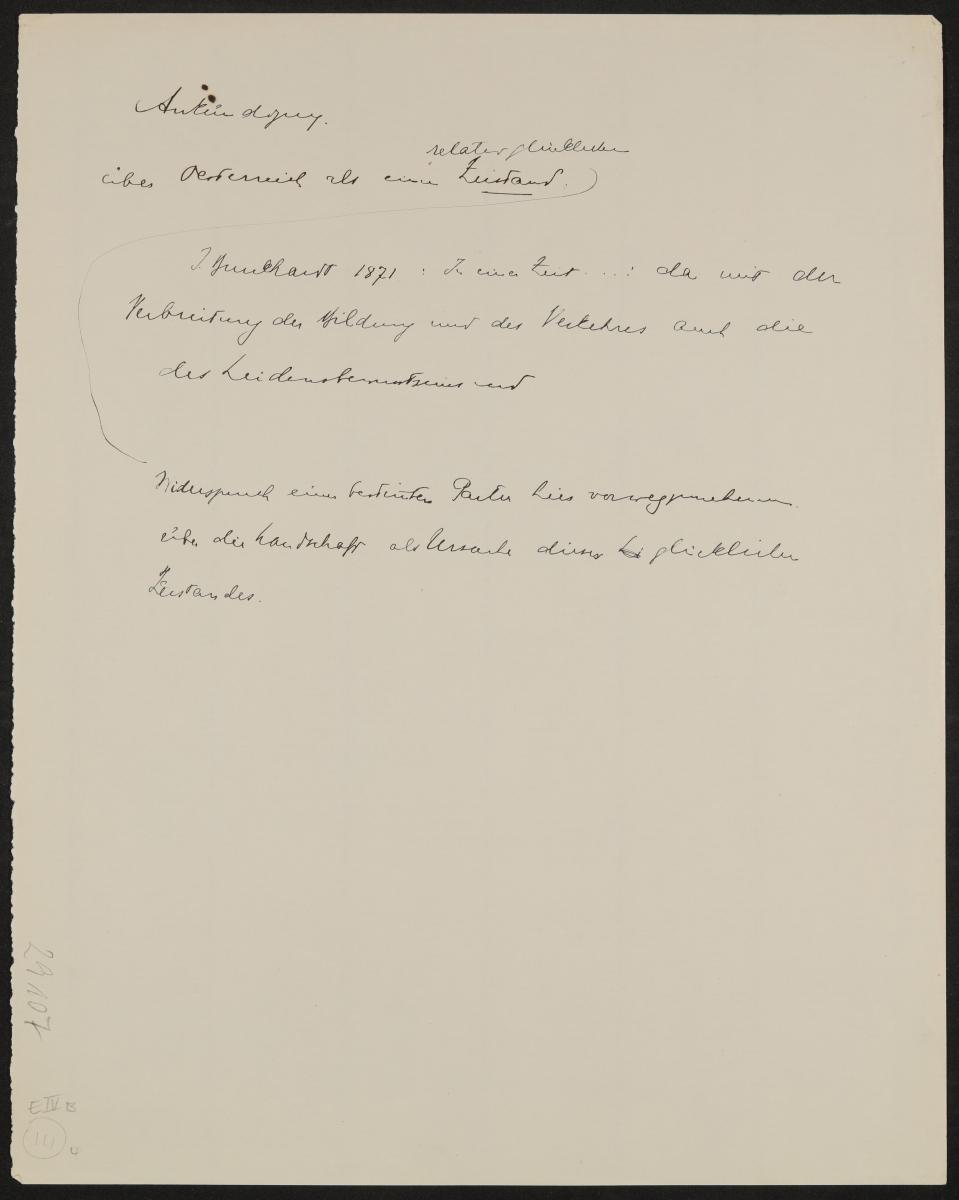 Ankündigung.
relativ glücklichen
über Oesterreich als einen Zustand.
J. Burckhardt 1871 : In einer Zeit ...: da mit der
Verbreitung der Bildung und des Verkehres auch die
des Leidensbewusstseins und
Widerspruch einer bestimmten Partei hier vorwegzunehmen.
über die Landschaft als Ursache dieses glücklichen
Zustandes.
29107
E IV B